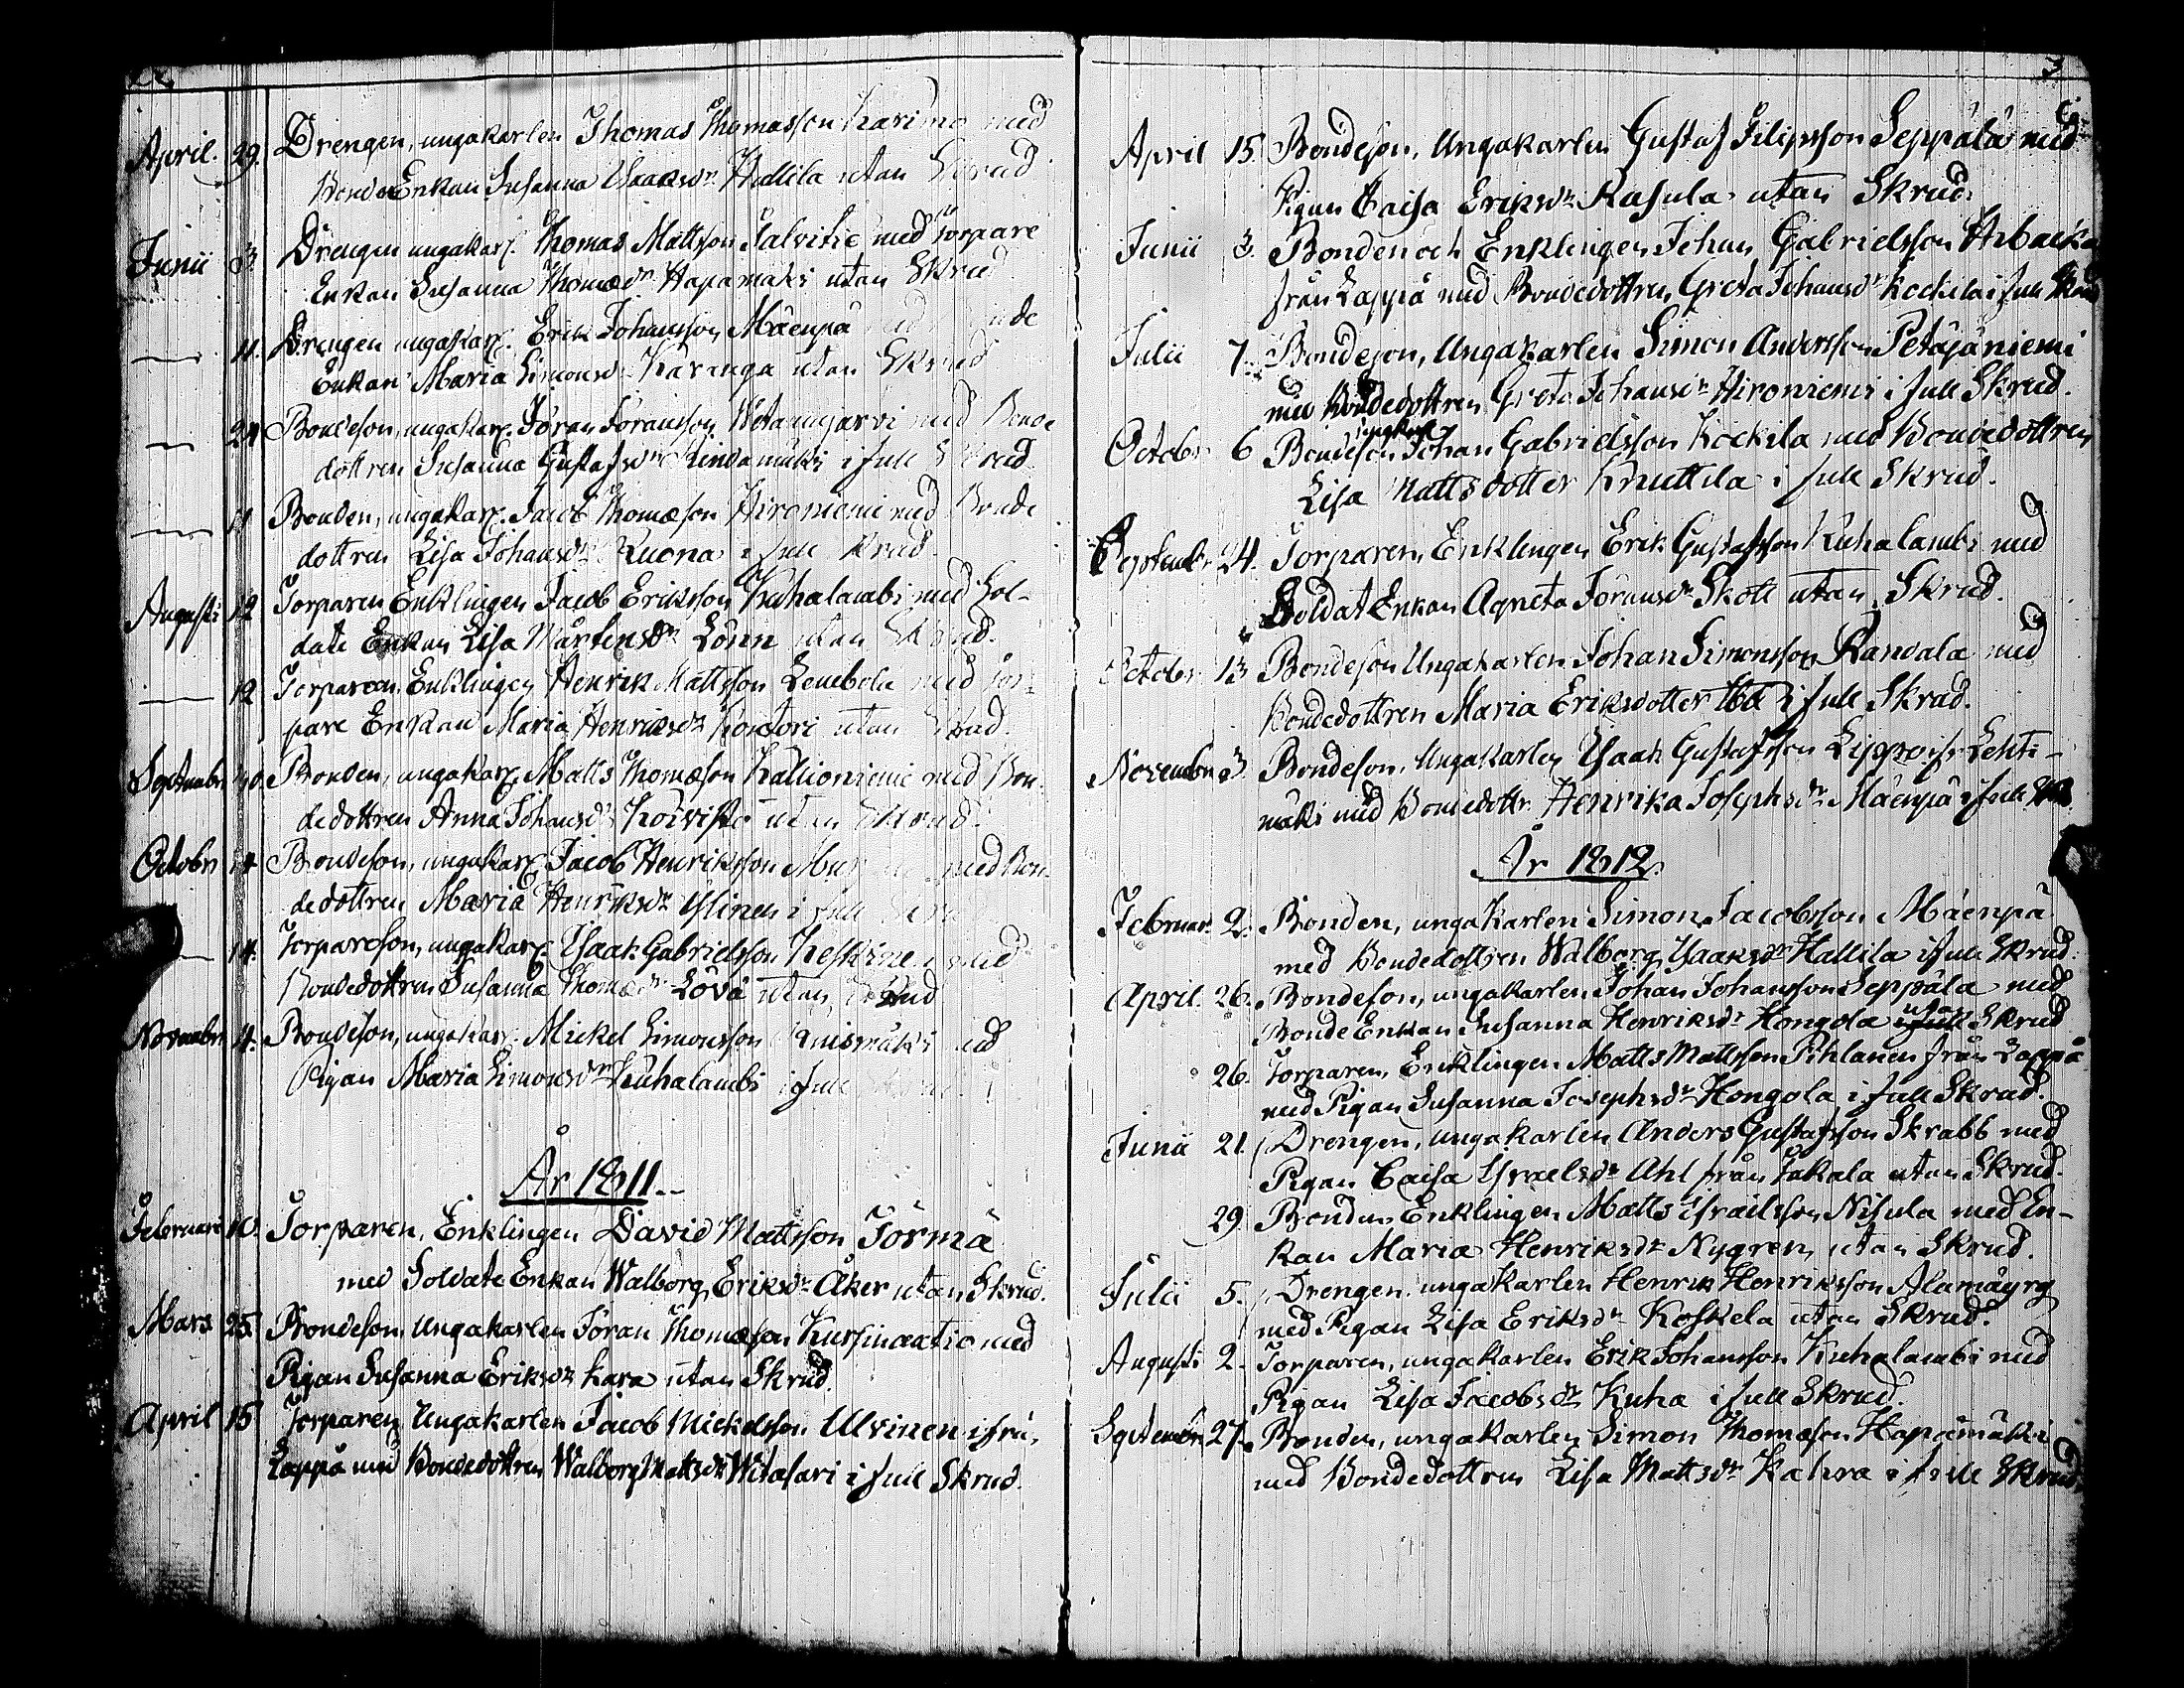 April. 29. Drengen, ungakarlen Thomas Thomasson Karimo med
BondeEnkan Susanna Isaaksdr Hallila utan Skrud
Junii 3. Drengen ungakarl. Thomas Mattsson Salvitie med Torpare
Enkan Susanna Thomædr Hapamaki utan Skrud
11. Drengen ungakarl. Erik Johansson Mäenpä
Enkan Maria Simonsdr Karanga utan Skrud
24 Bondeson, ungakarl. Jöran Jöransson Wetamajarvi med Bonde
dottren Susanna Gustafsdr Rindamäki i full Skrud
Bonden, ungakarl. Jacob Thomæson Hironiemi med Bonde
dottren Lisa Johansdr Kuona i full krud
Augusti 12 Torparen Enklingen Jacob Eriksson Kuhalambi med Sol-
date Enkan Lisa Mårtensdr Lönn utan Skrud.
12 Torparen Enklingen Henrik Mattsson Lembola med Tor-
pare Enkan Maria Henriksdr Kontori utan Skrud
Septembr 30. Bonden, ungakarl. Matts Thomæson Kallioniemi med Bon-
dedottren Anna Johansdr Koivisto utan Skrud.
Octobr 14 Bondeson, ungakarl. Jacob Henriksson med Bon-
dedottren Maria Henriksdr Ylinen i full
14. Torpareson, ungakarl. Isaak Gabrielsson Keskinen med
Bondedottren Susanna Thomædr Löva utan Skrud
Novembr 4. Bondeson, ungakarl. Mickel Simonsson Ruismäki med
Pigan Maria Simonsdr Kuhalambi i full
År 1811.
Februari 10. Torparen, Enklingen David Mattsson Törmä
med Soldate Enkan Walborg Eriksdr Åker utan Skrud.
Mars 25. Bondeson, Ungakarlen Jöran Thomæson Kursinaatio med
Pigan Susanna Eriksdr Kara utan Skrud.
April 15 Torparen Ungakarlen Jacob Mickelsson Ulvinen ifrån
Lappå med Bondedottren Walborg Mattsdr Witasari i full Skrud.
3
April 15. Bondeson, Ungakarlen Gustaf Filipsson Seppälä med
Pigan Caisa Eriksdr Rasula utan Skrud.
Junii 3. Bonden och Enklingen Johan Gabrielsson Arbacka
från Lappå med Bondedottren Greta Johansdr Kockila i full Skrud
Julii 7. Bondeson, Ungakarlen Simon Andersson Petäjäniemi
med Bondedottren Greta Johansdr Hironiemi i full Skrud.
ungkarl.
Octobr 6 Bondeson Johan Gabrielsson Kockila med Bondedottren
Lisa Mattsdotter Knuttila i full Skrud.
Septembr 24. Torparen, Enklingen Erik Gustafsson Kuhalambi med
Soldat Enkan Agneta Jöransdr Skott utan Skrud.
Octobr 13 Bondeson Ungakarlen Johan Simonsson Randala med
Bondedottren Maria Eriksdotter i full Skrud.
Novembr 3. Bondeson, Ungakarlen Isaak Gustafsson Lehti-
mäki med Bondedottr. Henrika Josephsdr Mäenpä i full
År 1812.
Februar. 2. Bonden, ungakarlen Simon Jacobsson Mäenpä
med Bondedottren Walborg Isaaksdr Hallila i full Skrud.
April 26. Bondeson, ungakarlen Johan Johansson Seppälä med
utan
Bonde Enkan Susanna Henriksdr Hongola i full Skrud
26. Torparen, Enklingen Matts Mattsson Pihlanen från Lappå
med Pigan Susanna Josephsdr Hongola i full Skrud.
Junii 21. Drengen, ungakarlen Anders Gustafsson Skrabb med
Pigan Caisa Israelsdr Ahl från utan Skrud.
29 Bonden Enklingen Matts Israelsson Nisula med En-
kan Maria Henriksdr Nygren utan Skrud.
Julii 5. Drengen, ungakarlen Henrik Henriksson Alamäyry
med Pigan Lisa Eriksdr Koskela utan Skrud.
Augusti 2. Torparen, ungakarlen Erik Johansson Kuhalambi med
Pigan Lisa Jacobsdr Kuha i full Skrud.
Septembr 27. Bonden, ungakarlen Simon Thomæson Hapamäki
med Bondedottren Lisa Mattsdr Kahra i full Skrud